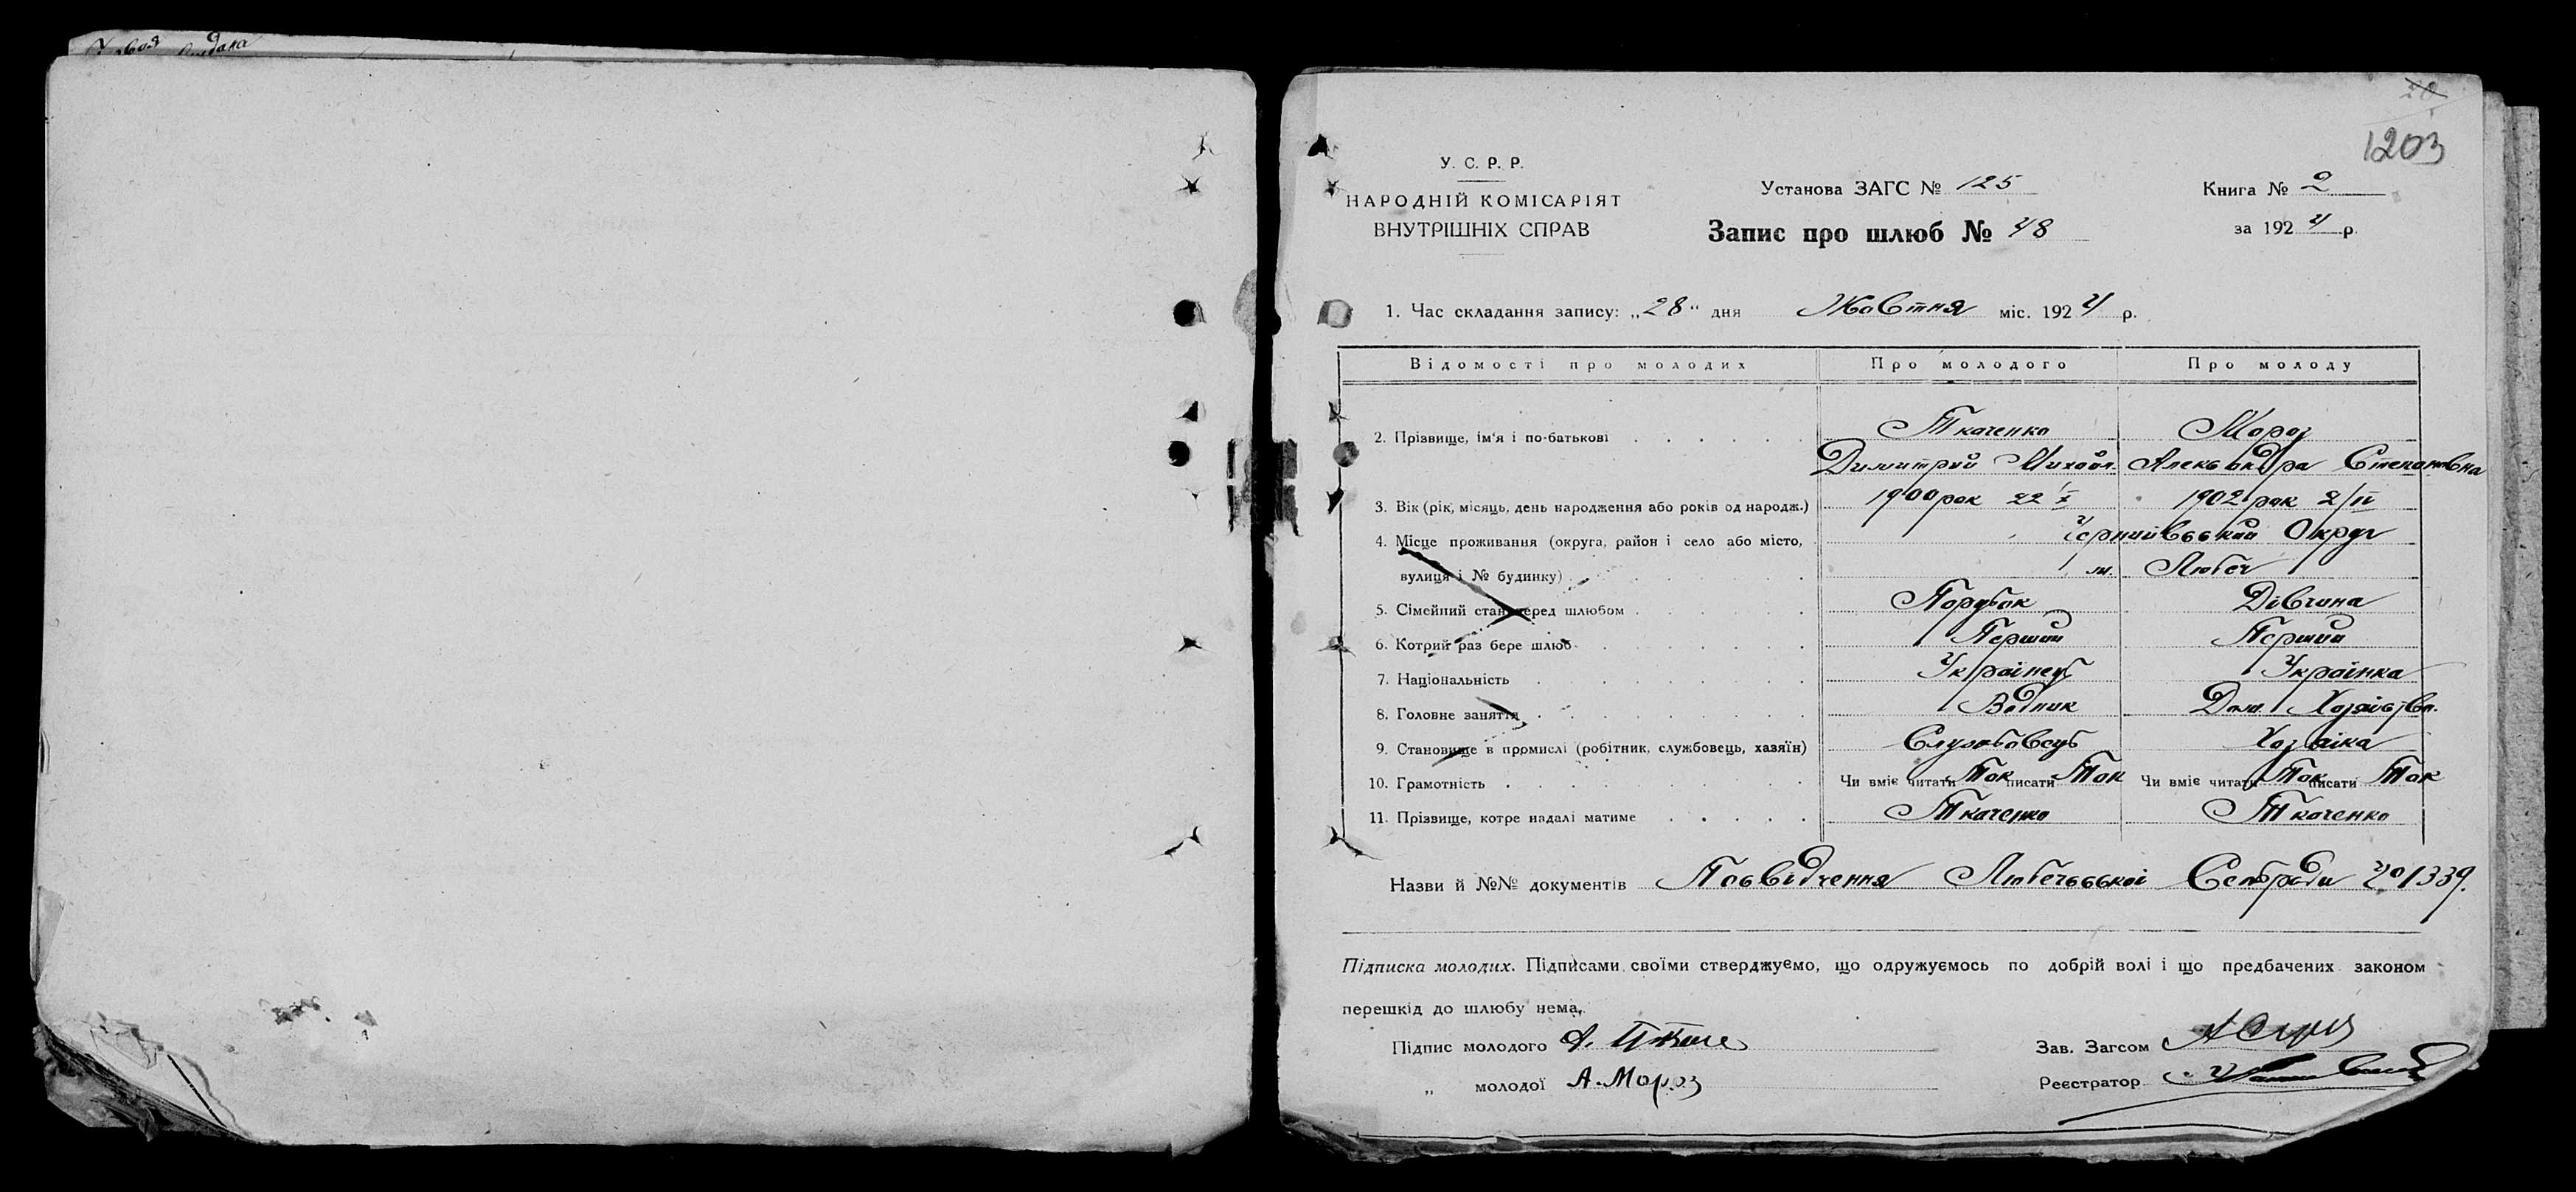 1203
У. С. Р. Р.
НАРОДНІЙ КОМІСАРІЯТ
ВНУТРІШНІХ СПРАВ
Установа ЗАГС № 125
Запис про шлюб № 48
Книга № 2
за 1924 р.
1. Час складання запису: „28“ дня Жовтня міс. 1924 р.
Відомості про молодих Про молодого Про молоду
2. Прізвище, ім'я і по-батькові Ткаченко Мороз
Димитрий Михайл. Александра Степановна
3. Вік (рік, місяць, день народження або років од народж.) 1900 рок 22 1902 рок 2/IV
4. Місце проживання (округа, район і село або місто, Чернігівський Округ
вулиця і № будинку) м. Любеч
5. Сімейний стан перед шлюбом Порубок Дівчина
6. Котрий раз бере шлюб Перший Перший
7. Національність Українець Українка
8. Головне заняття Водник Дом. Хозяйство.
9. Становище в промислі (робітник, службовець, хазяїн) Службовець Хозяіка
10. Грамотність Чи вміє читати Так писати Так Чи вміє читати Так писати Так
11. Прізвище, котре надалі матиме Ткаченко Ткаченко
Назви й №№ документів Посвідчення Любечської Сельради № 1339.
Підписка молодих. Підписами своїми стверджуємо, що одружуємось по добрій волі і що предбачених законом
перешкід до шлюбу нема.
Підпис молодого
„ молодої А. Мороз
Зав. Загсом
Реєстратор